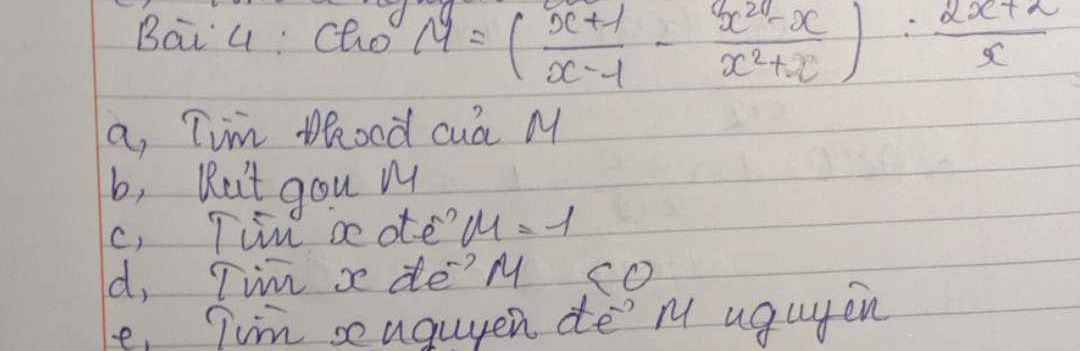 Bài 4: Cho M = ( x+1/x-1 - x²-x/x²+x ) : 2x+2/x
a, Tìm Đkxđ của M
b, Rút gọn M
c, Tìm x để M = 1
d, Tìm x để M < 0
e, Tìm x nguyên để M nguyên